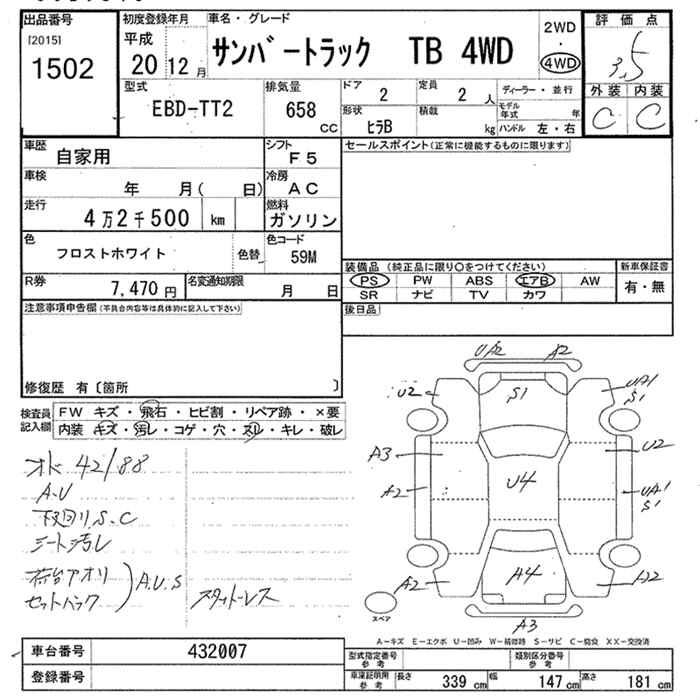 出品番号
[2015]
1502
初度登録年月
平成
20 12 月
車名・グレード
サンバートラック TB 4WD
2WD
・
4WD
評価点
3,5
外装 内装
C C
型式
EBD-TT2
排気量
658
cc
ドア
2
定員
2 人
ディーラー・並行
モデル年式 年
形状
ヒラB
積載
kg
ハンドル 左・右
車歴
自家用
シフト
F5
車検
年 月( 日)
冷房
AC
走行
4万2千500 km
燃料
ガソリン
色
フロストホワイト
色替
色コード
59M
R券
7,470 円
名変通知期限
月 日
セールスポイント(正常に機能するものに限ります)
装備品(純正品に限り○をつけてください)
PS PW ABS エアB AW
SR ナビ TV カワ
新車保証書
有・無
後日品
注意事項申告欄(不具合内容等は具体的に記入して下さい)
修復歴 有〔箇所 〕
検査員
記入欄
FW キズ・飛石・ヒビ割・リペア跡・×要
内装 キズ・汚レ・コゲ・穴・スレ・キレ・破レ
42/88
A.U
下回リS.C
シート汚レ
荷台アオリ
セットバック
A.U.S
スタットレス
UA2 A2
U2
S1
UA1
S1
A3
U2
A2
U4
UA1
S1
A2
A4
A2
A3
スペア
A-キズ E-エクボ U-凹み W-補修跡 S-サビ C-腐食 XX-交換済
車台番号
432007
登録番号
型式指定番号
参考
類別区分番号
参考
車庫証明用
参考
長さ 339 cm
幅 147 cm
高さ 181 cm